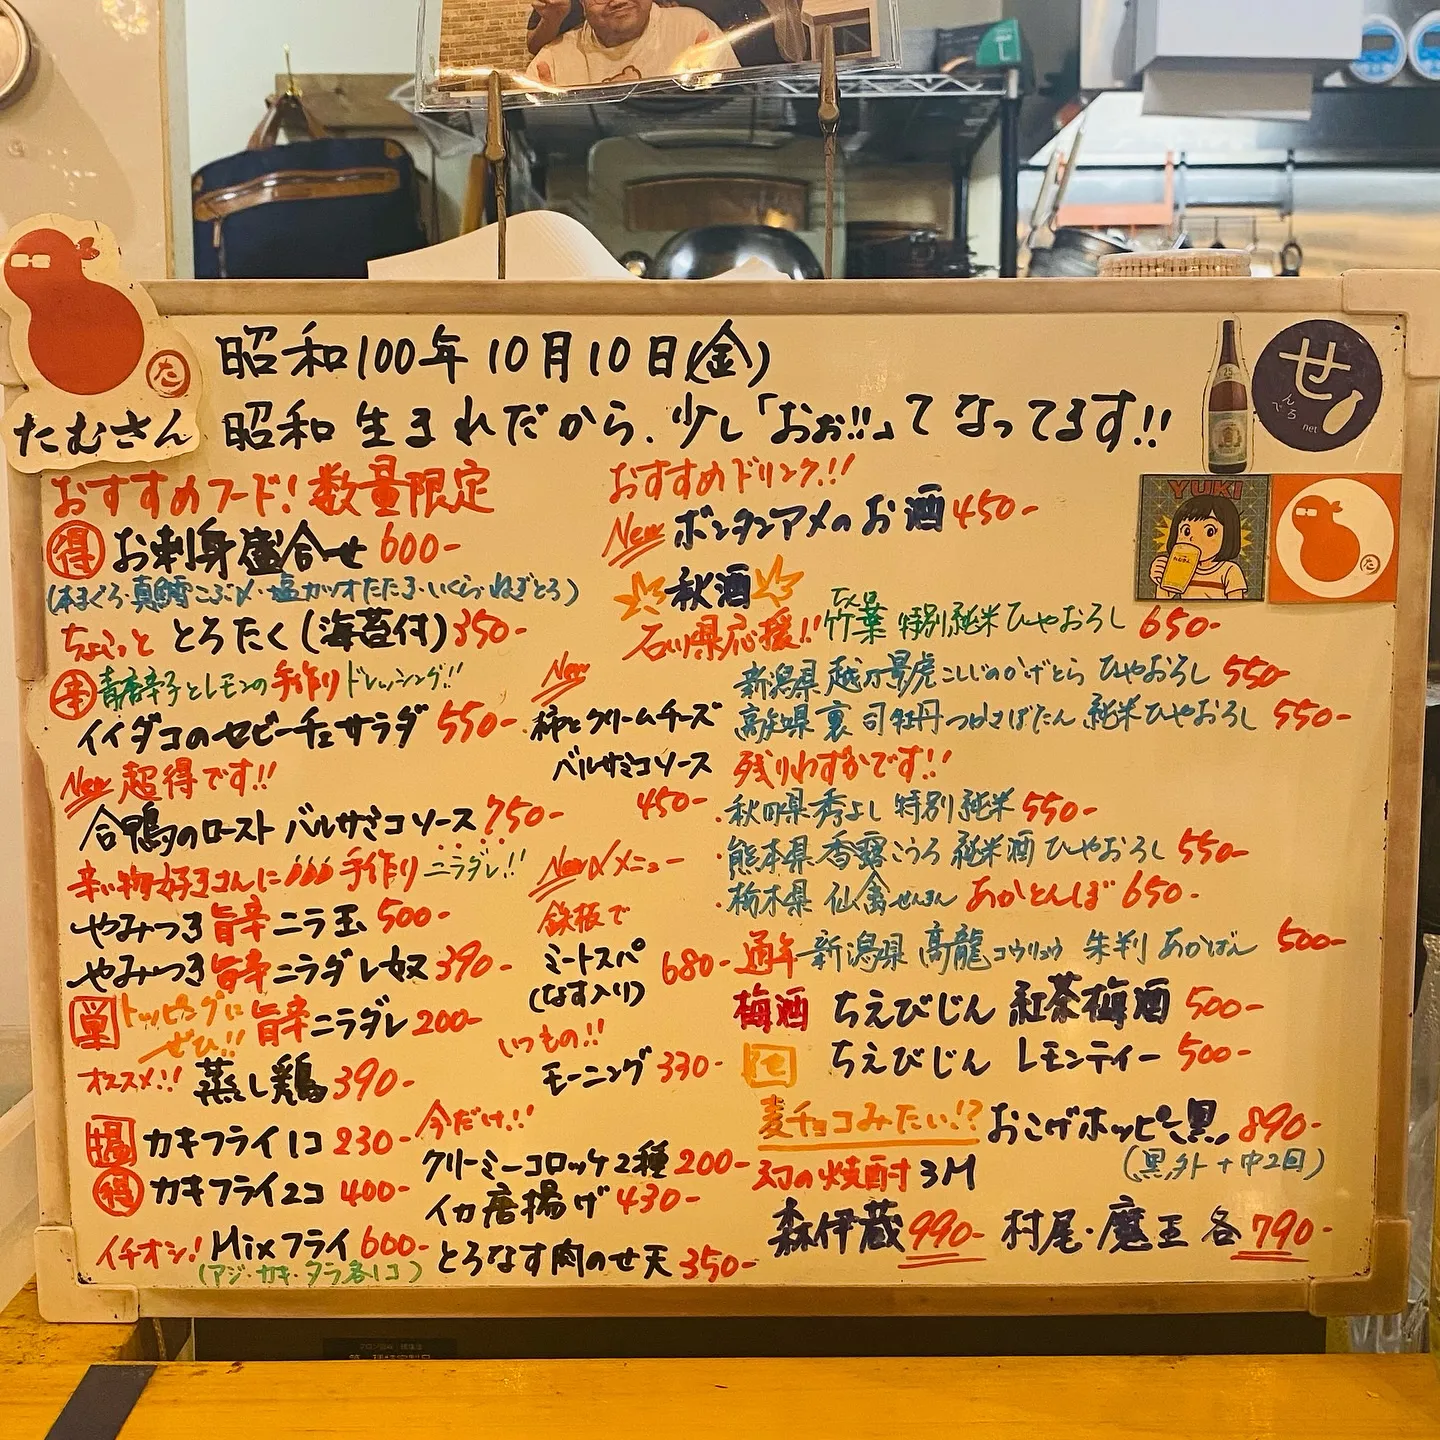 昭和100年10月10日(金)
昭和生まれだから、少し「おぉ!!」ってなってます!!
たむさん
せ
んべろ
net
YUKI
おすすめフード!数量限定
得 お刺身盛合せ 600-
(本まぐろ・真鯛こぶ〆・塩カツオたたき・いくら・ねぎとろ)
ちょこっと とろたく(海苔付) 350-
青唐辛子とレモンの手作りドレッシング!!
イイダコのセビーチェサラダ 550-
New 超得です!!
合鴨のロースト バルサミコソース 750-
辛い物好きさんに 手作りニラダレ!!
やみつき旨辛ニラ玉 500-
やみつき旨辛ニラダレ奴 390-
単 トッピングに ぜひ!! 旨辛ニラダレ 200-
オススメ!! 蒸し鶏 390-
カキフライ1コ 230-
得 カキフライ2コ 400-
イチオシ! Mixフライ 600-
(アジ・カキ・タラ各1コ)
New
柿とクリームチーズ
バルサミコソース
450-
New〆メニュー
鉄板で
ミートスパ
(なす入り) 680-
いつもの!!
モーニング 330-
今だけ!!
クリーミーコロッケ2種 200-
イカ唐揚げ 430-
とろなす肉のせ天 350-
おすすめドリンク!!
New ボンタンアメのお酒 450-
秋酒
石川県応援!! 竹葉 特別純米ひやおろし 650-
新潟県 越乃景虎 こしじのかげとら ひやおろし 550-
高知県 裏 司牡丹 つかさぼたん 純米ひやおろし 550-
残りわずかです!!
・秋田県 秀よし 特別純米 550-
・熊本県 香露 こうろ 純米酒 ひやおろし 550-
・栃木県 仙禽 せんきん あかとんぼ 650-
通年 新潟県 高龍 コウリュウ 朱判 あかばん 500-
梅酒 ちえびじん 紅茶梅酒 500-
ちえびじん レモンティー 500-
麦チョコみたい!? おこげホッピー黒 890-
(黒外+中2回)
幻の焼酎 3M
森伊蔵 990- 村尾・魔王 各790-